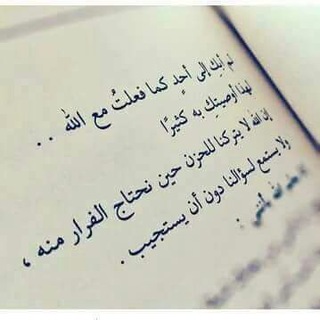 لم أبكِ إلى أحدٍ كما فعلتُ مع الله . .
لهذا أوصيتكِ به كثيرًا
إن الله لا يتركنا للحزن حين نحتاج الفرار منه ،
ولا يستمع لسؤالنا دون أن يستجيب .